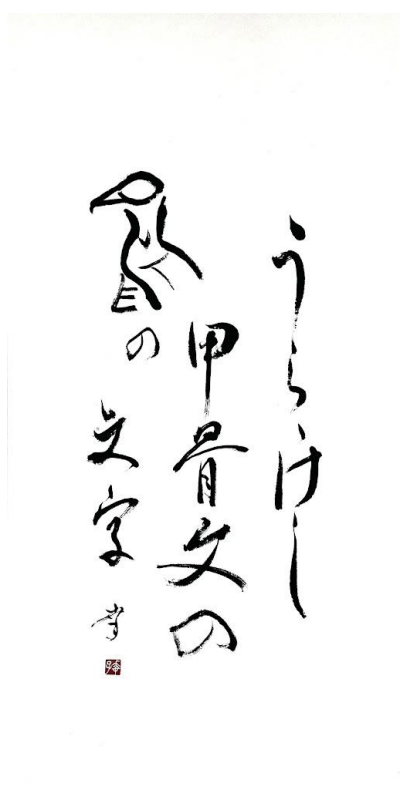 うらゝけし
甲骨文の
鳥の文字